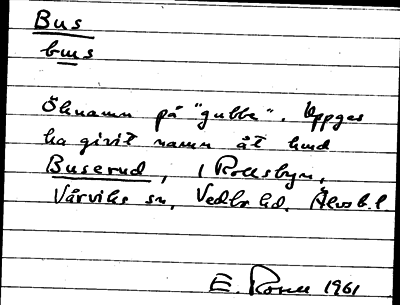 Bus
bus
Öknamn på "gubbe". Uppges
ha givit namn åt hmd
Buserud, i Rollsbyn,
Vårviks sn, Vedbo hd. Älvsb. l
E. 1961